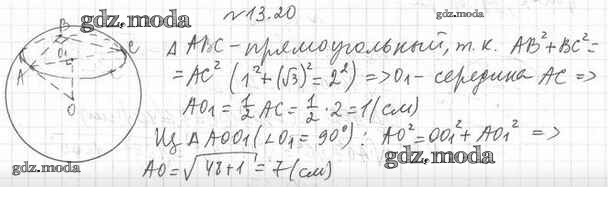 gdz.moda
№13.20
B
K
A
O₁
C
O
Δ ABC - прямоугольный, т.к. AB²+BC²=
=AC² (1²+(√3)²=2²) => O₁ - середина AC =>
AO₁ = 1/2 AC = 1/2 · 2 = 1 (см)
Из Δ AOO₁ (∠O₁ = 90°): AO² = OO₁² + AO₁² =>
gdz.moda
gdz.moda
AO = √48+1 = 7 (см)